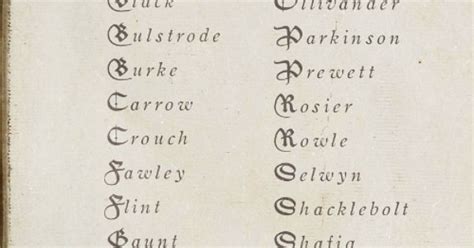 Black
Bulstrode
Burke
Carrow
Crouch
Fawley
Flint
Gaunt
Ollivander
Parkinson
Prewett
Rosier
Rowle
Selwyn
Shacklebolt
Shafiq